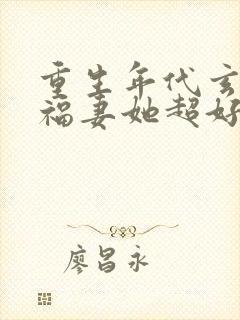 重生年代玄
福妻她超好
廖昌永